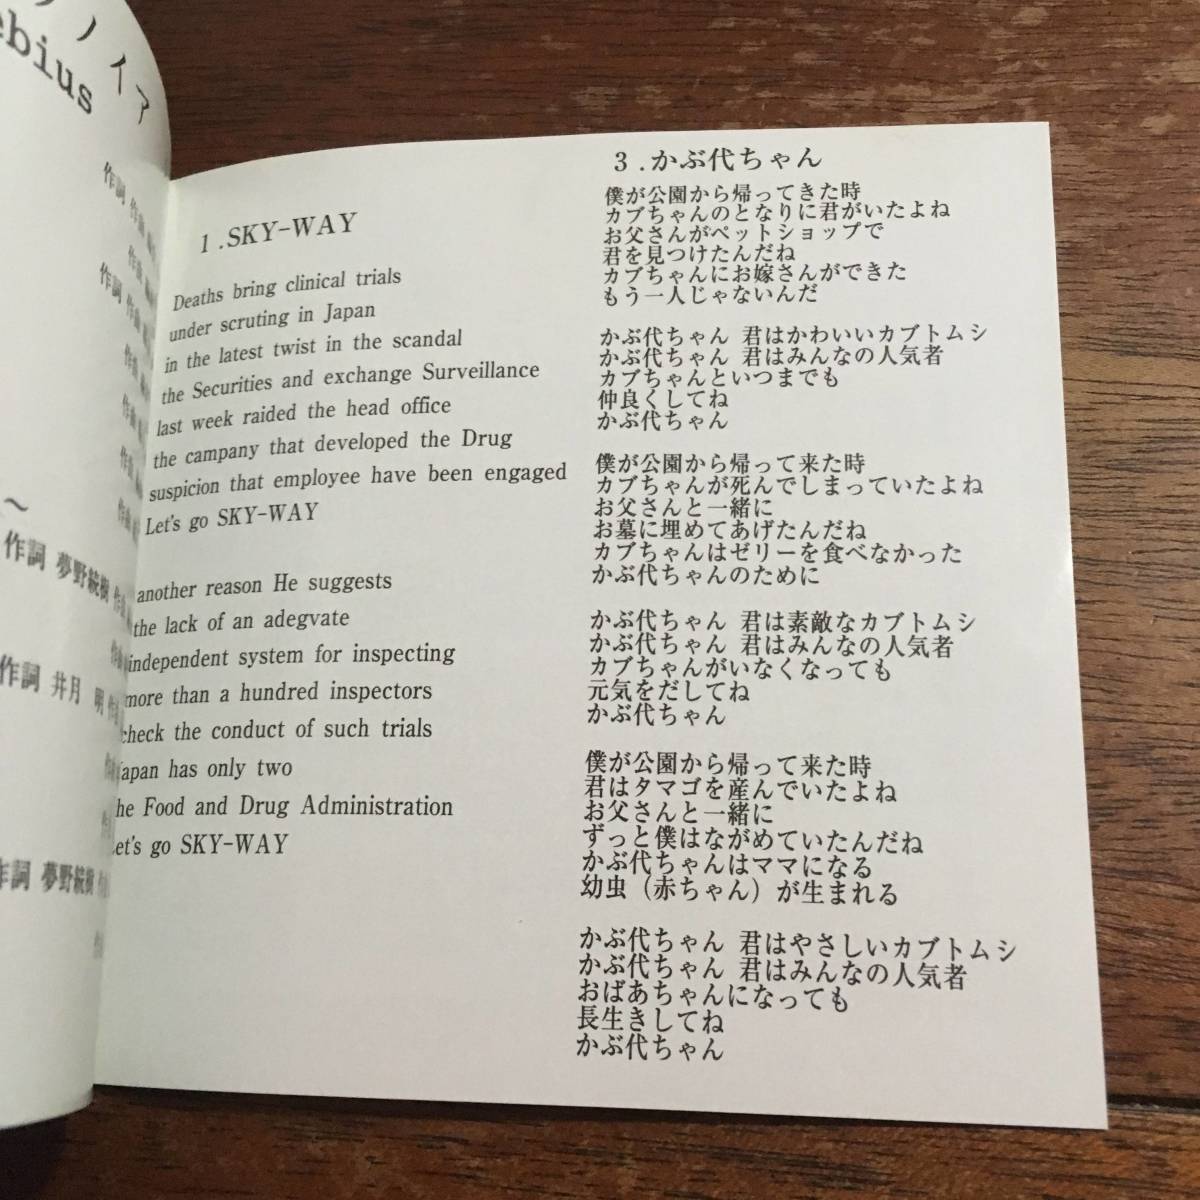 ノイア
ebius
作詞 作曲
作曲
作詞 作曲
作曲
作曲
作曲
作曲
～
作詞 夢野統樹 作曲
作曲
作詞 井月 明 作曲
作曲
作曲
作詞 夢野統樹 作曲
1.SKY-WAY
Deaths bring clinical trials
under scruting in Japan
in the latest twist in the scandal
the Securities and exchange Surveillance
last week raided the head office
the campany that developed the Drug
suspicion that employee have been engaged
Let's go SKY-WAY
another reason He suggests
the lack of an adegvate
independent system for inspecting
more than a hundred inspectors
check the conduct of such trials
Japan has only two
he Food and Drug Administration
et's go SKY-WAY
3.かぶ代ちゃん
僕が公園から帰ってきた時
カブちゃんのとなりに君がいたよね
お父さんがペットショップで
君を見つけたんだね
カブちゃんにお嫁さんができた
もう一人じゃないんだ
かぶ代ちゃん 君はかわいいカブトムシ
かぶ代ちゃん 君はみんなの人気者
カブちゃんといつまでも
仲良くしてね
かぶ代ちゃん
僕が公園から帰って来た時
カブちゃんが死んでしまっていたよね
お父さんと一緒に
お墓に埋めてあげたんだね
カブちゃんはゼリーを食べなかった
かぶ代ちゃんのために
かぶ代ちゃん 君は素敵なカブトムシ
かぶ代ちゃん 君はみんなの人気者
カブちゃんがいなくなっても
元気をだしてね
かぶ代ちゃん
僕が公園から帰って来た時
君はタマゴを産んでいたよね
お父さんと一緒に
ずっと僕はながめていたんだね
かぶ代ちゃんはママになる
幼虫（赤ちゃん）が生まれる
かぶ代ちゃん 君はやさしいカブトムシ
かぶ代ちゃん 君はみんなの人気者
おばあちゃんになっても
長生きしてね
かぶ代ちゃん